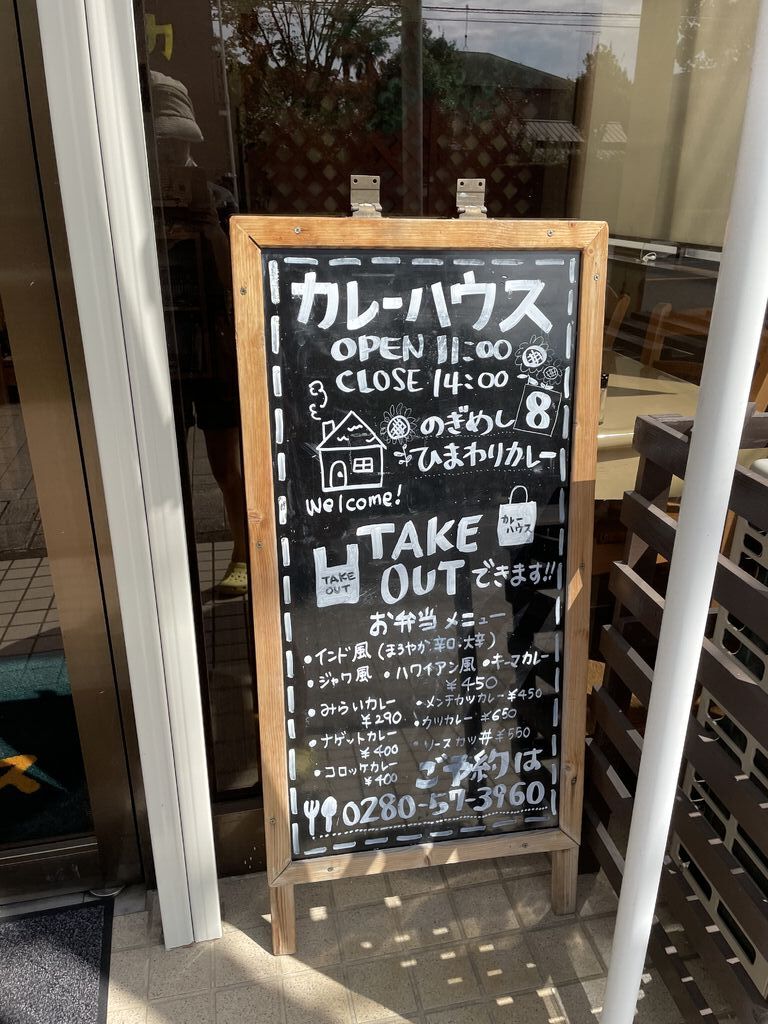 カ
カレーハウス
OPEN 11:00
CLOSE 14:00
8
のぎめし
ひまわりカレー
Welcome!
カレー
ハウス
TAKE
OUT できます!!
TAKE
OUT
お弁当メニュー
・インド風(まろやか・辛口・大辛)
・ジャワ風 ・ハワイアン風 ・キーマカレー
¥450
・みらいカレー
¥290
・メンチカツカレー ¥450
・カツカレー ¥650
・ナゲットカレー
¥400
・ソースカツ丼 ¥550
・コロッケカレー
¥400
ご予約は
0280-57-3960
ス